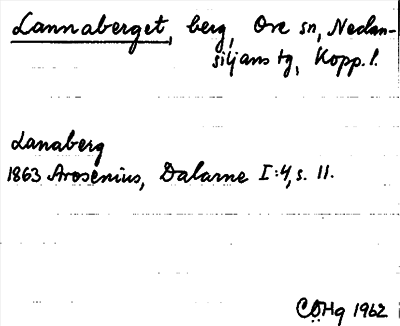 Lannaberget, berg, Ore sn, Nedan-
siljans tg, Kopp. l.
Lanaberg
1863 Arosenius, Dalarne I:4, s. 11.
CÖHg 1962